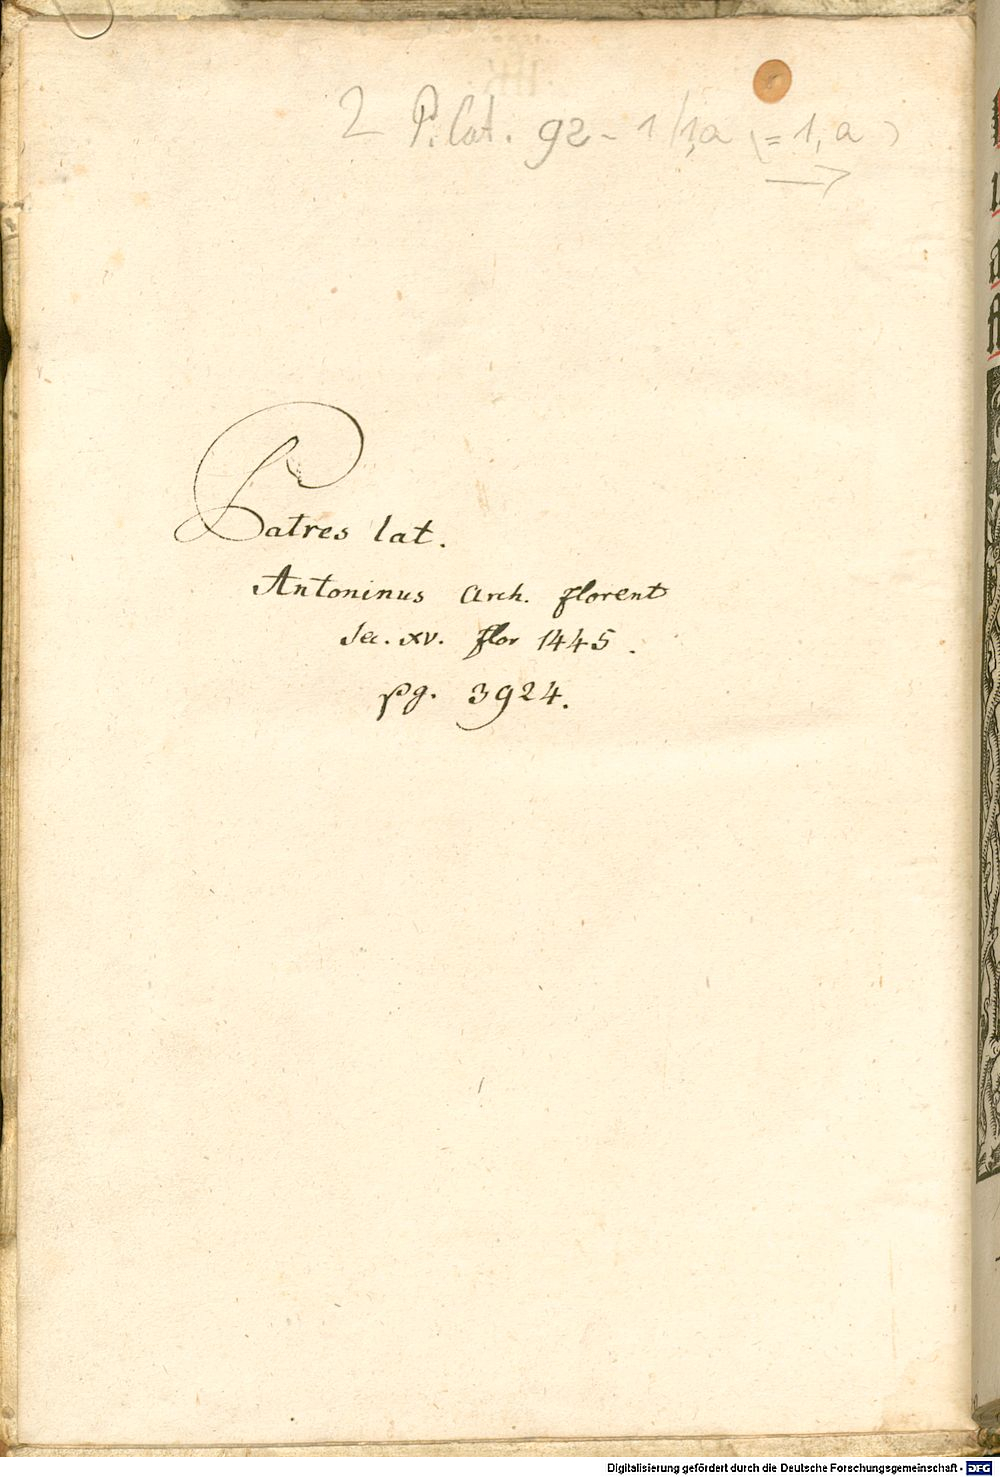 2 P. lat. 92-1/1,a (= 1, a)
Patres lat.
Antoninus Arch. florent
Sec. xv. flor 1445.
pg. 3924.
Digitalisierung gefördert durch die Deutsche Forschungsgemeinschaft - DFG